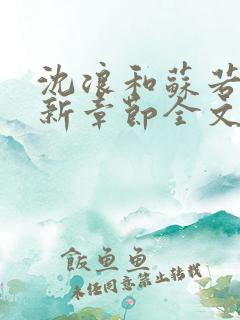 沈浪和蘇若
新章節全文
飯魚魚
未經同意禁止轉載